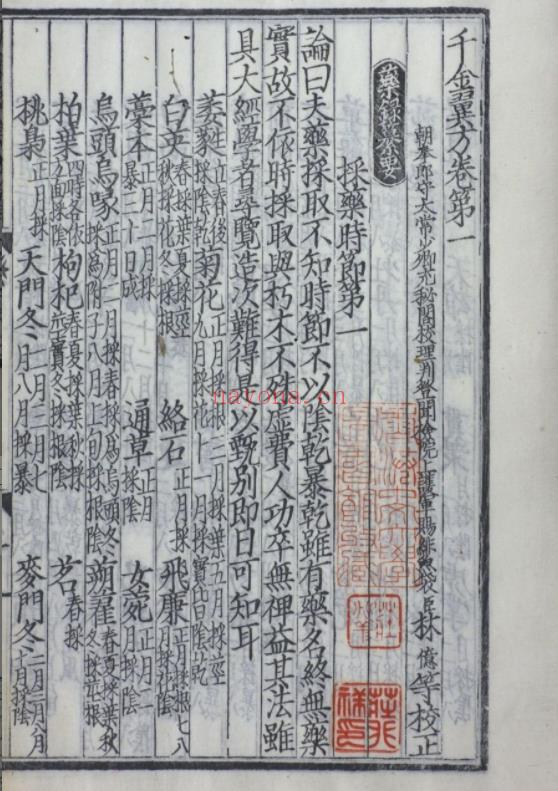 千金翼方卷第一
朝奉郎守太常少卿充秘閣校理判登聞檢院上護軍賜緋魚袋臣林億等校正
藥錄纂要
採藥時節第一
論曰夫藥採取不知時節不以陰乾暴乾雖有藥名終無藥
實故不依時採取與朽木不殊虛費人功卒無裨益其法雖
具大經學者尋覽造次難得是以甄別即日可知耳
萎蕤立春後採陰乾菊花正月採根三月採葉五月採莖九月採花十一月採實皆陰乾
白英春採葉夏採莖秋採花冬採根絡石正月採飛廉正月採根七八月採花陰
藁本正月二月採暴三十日成通草正月採陰女菀正月二月採陰
烏頭烏喙正月二月採春採為烏頭冬採為附子八月上旬採根陰蒴藋春夏採葉秋冬採莖根
柏葉四時各依方面採陰枸杞春夏採葉秋採莖實冬採根陰茗春採
桃梟正月採天門冬二月三月七月八月採暴麥門冬二月三月八月十月採陰
nayona.cn